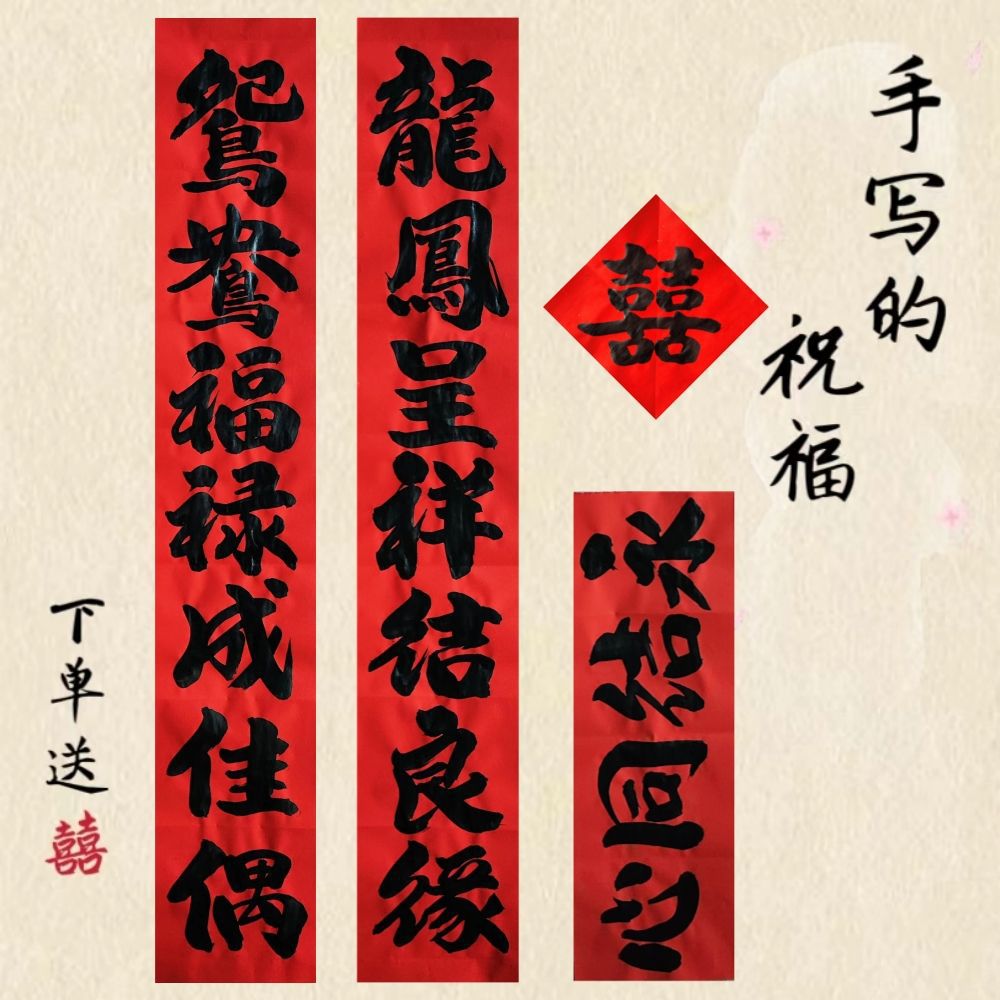 手写的
祝福
囍
永结同心
龍鳳呈祥结良缘
鴛鴦福禄成佳偶
下单送囍